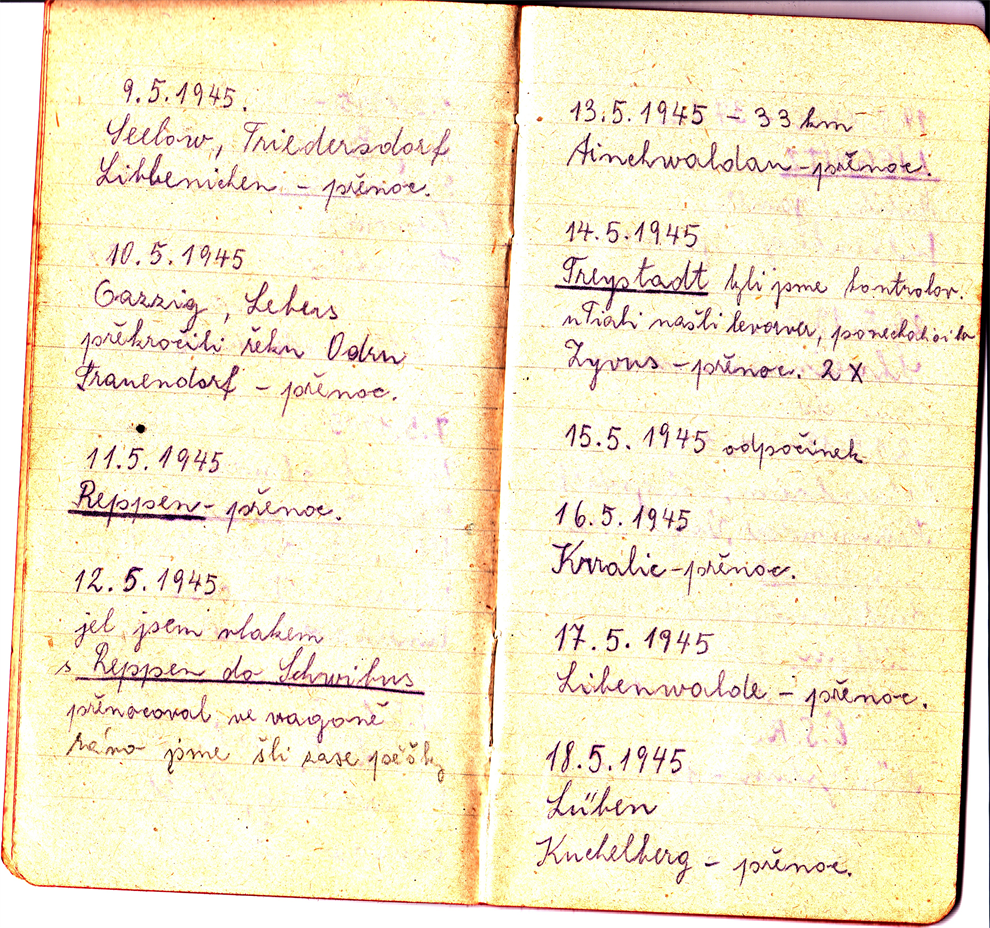 9.5.1945.
Seelow, Friedersdorf
Libbenichen - přenoc.
10.5.1945
Gazzig, Lebus
překročili řeku Odru
Frauendorf - přenoc.
11.5.1945
Reppen - přenoc.
12.5.1945
jel jsem vlakem
s Reppen do Schwibus
přenocoval ve vagoně
ráno jsme šli zase pěšky
13.5.1945 - 33 km
- přenoc.
14.5.1945
Freystadt byli jsme kontrolov.
našli
Zyrus - přenoc. 2 x
15.5.1945 odpočinek
16.5.1945
- přenoc.
17.5.1945
Libenwalde - přenoc.
18.5.1945
Lüben
Kuchelberg - přenoc.